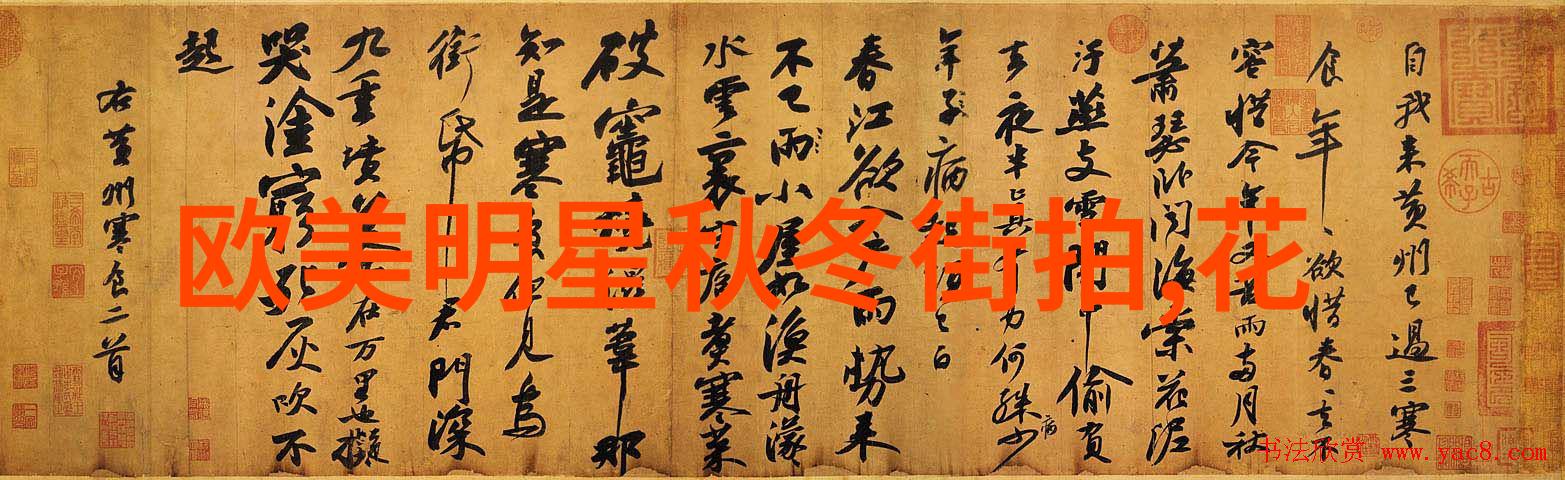 自我来黄州已過三寒
食年、欲惜春、去不
容惜今年又苦雨兩月秋
蕭瑟卧聞海棠花泥
汙燕支雪闇中偷負
去夜半真有力何殊少
病
年子病起已白
春江欲入雨勢来
不已雨小屋如漁舟濛
水雲裏空庖煮寒菜
破竈燒濕葦那
知是寒食但見烏
銜帋君門深
九重墳墓在万里也擬
哭塗窮死灰吹不
起
右黄州寒食二首
欧美明星秋冬街拍,花
书法欣赏 www.yac8.com